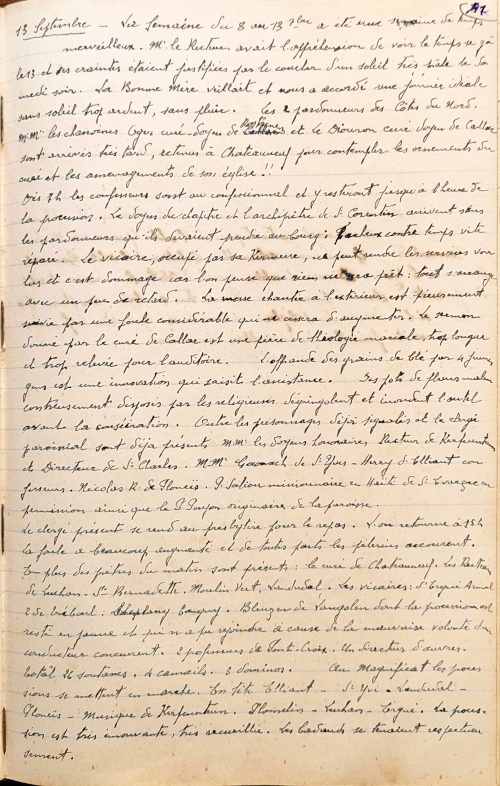 97
13 Septembre – La Semaine du 8 au 13 7bre a été une semaine de temps
merveilleux. Mr le Recteur avait l'appréhension de voir le temps se gâ
le 13 et ses craintes étaient justifiées par le coucher d'un soleil très pale le Sa
medi soir. La Bonne Mère veillait et nous a accordé une journée idéale
sans soleil trop ardent, sans pluie. Les 2 pardonneurs des Côtes du Nord.
M.Mrs les chanoines Oger curé-doyen de Rostrenen et Le Diouron curé doyen de Callac
sont arrivés très tard, retenus à Chateauneuf pour contempler les ornements du
curé et les aménagements de son église !!
Dès 7h les confesseurs sont au confessionnal et y resteront jusqu'à l'heure de
la procession. Le doyen du chapitre et l'archiprêtre de St Corentin arrivent sans
les pardonneurs qu'ils devaient prendre au bourg : facheux contre temps vite
réparé. Le vicaire, occupé par sa Kermesse, ne peut rendre les services vou
lus et c'est dommage car l'on pense que rien ne sera prêt : tout s'arrange
avec un peu de retard. La messe chantée à l'extérieur est pieusement
suivie par une foule considérable qui ne cessera d'augmenter. Le sermon
donné par le curé de Callac est une pièce de théologie mariale, trop longue
et trop relevée pour l'auditoire. L'offrande des grains de blé par 4 jeunes
gens est une innovation qui saisit l'assistance. Des pots de fleurs malen
contreusement disposés par les religieuses dégringolent et inondent l'autel
avant la consécration. Outre les personnages déjà signalés et le clergé
paroissial sont déjà présents M.Mrs les doyens honoraires Recteur de Kerfeunteun
et Directeur de St Charles. M.Mrs de St Yves – Herry d'Elliant con
fesseurs. Nicolas R. de Ploneis. P. Salion missionnaire en Haiti de St Evarzec en
permission ainsi que le P. originaire de la paroisse.
Le clergé présent se rend au presbytère pour le repas. L'on retourne à 15h
la foule a beaucoup augmenté et de toutes parts les pèlerins accourent.
En plus des prêtres du matin sont présents : le curé de Chateauneuf. Les Recteurs
de Leuhan. Ste Bernadette, Moulin Vert, Landudal. Les vicaires : d'Ergué Armel
2 de Tréboul : Cougny. Bleuzen de Langolen dont la procession est
restée en panne et qui n'a pu rejoindre à cause de la mauvaise volonté d'un
conducteur concurrent. 2 professeurs de Pont-Croix. Un directeur d'œuvres.
Total 26 soutanes. 4 camails. 3 dominos. Au Magnificat les proces
sions se mettent en marche. En tête Elliant – St Yvi – Landudal –
Ploneis – Musique de Kerfeunteun – Plomelin – Leuhan – Ergué. La proces-
sion est très émouvante, très recueillie. Les badauds se tenaient respectueu
sement.